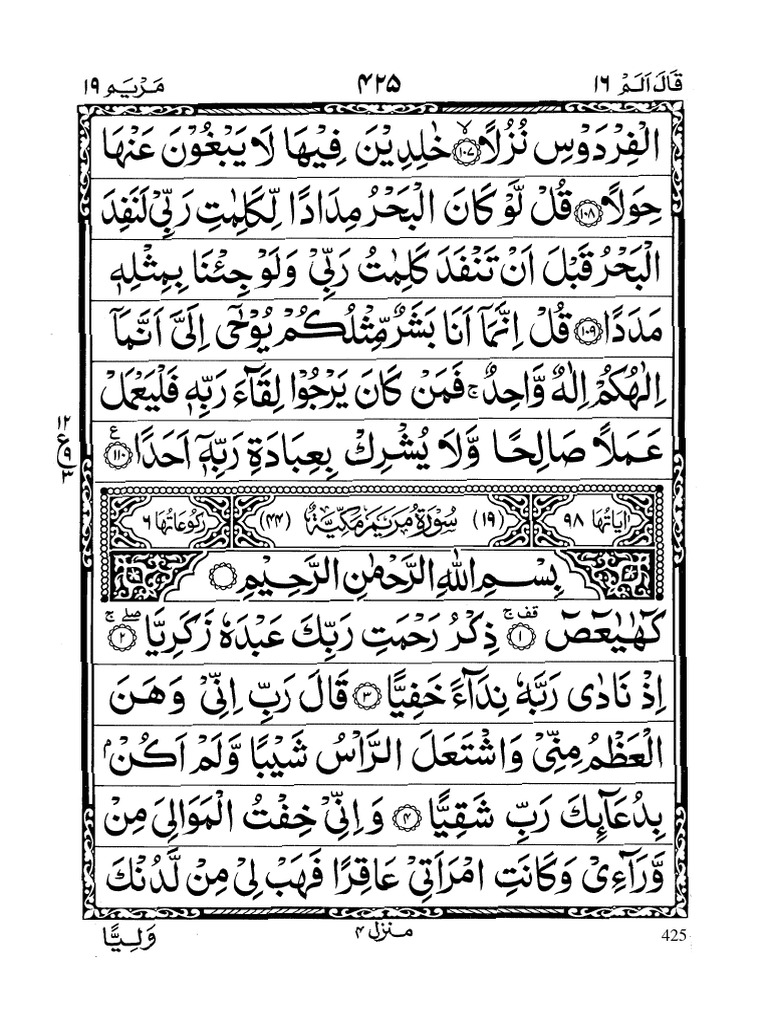 قَالَ اَلَمْ ١٦ ۴۲۵ مَرْيَم ١٩
الْفِرْدَوْسِ نُزُلًا ۙ﴿١٠٧﴾ خٰلِدِيْنَ فِيْهَا لَا يَبْغُوْنَ عَنْهَا
حِوَلًا ﴿١٠٨﴾ قُلْ لَّوْ كَانَ الْبَحْرُ مِدَادًا لِّكَلِمٰتِ رَبِّيْ لَنَفِدَ
الْبَحْرُ قَبْلَ اَنْ تَنْفَدَ كَلِمٰتُ رَبِّيْ وَلَوْ جِئْنَا بِمِثْلِهٖ
مَدَدًا ﴿١٠٩﴾ قُلْ اِنَّمَآ اَنَا بَشَرٌ مِّثْلُكُمْ يُوْحٰٓى اِلَيَّ اَنَّمَآ
اِلٰهُكُمْ اِلٰهٌ وَّاحِدٌ ۚ فَمَنْ كَانَ يَرْجُوْا لِقَآءَ رَبِّهٖ فَلْيَعْمَلْ
عَمَلًا صَالِحًا وَّلَا يُشْرِكْ بِعِبَادَةِ رَبِّهٖٓ اَحَدًا ﴿١١٠﴾ ع
١٢
ع
٩
٣
اٰيَاتُهَا ٩٨ (١٩) سُوْرَةُ مَرْيَمَ مَكِّيَّةٌ (۴۴) رُكُوْعَاتُهَا ٦
بِسْمِ اللّٰهِ الرَّحْمٰنِ الرَّحِيْمِ
كٓهٰيٰعٓصٓ ۚ قف ﴿١﴾ ذِكْرُ رَحْمَتِ رَبِّكَ عَبْدَهٗ زَكَرِيَّا ۖ ۚ ﴿٢﴾
اِذْ نَادٰى رَبَّهٗ نِدَآءً خَفِيًّا ﴿٣﴾ قَالَ رَبِّ اِنِّيْ وَهَنَ
الْعَظْمُ مِنِّيْ وَاشْتَعَلَ الرَّاْسُ شَيْبًا وَّلَمْ اَكُنْۢ
بِدُعَآئِكَ رَبِّ شَقِيًّا ﴿۴﴾ وَاِنِّيْ خِفْتُ الْمَوَالِيَ مِنْ
وَّرَآءِيْ وَكَانَتِ امْرَاَتِيْ عَاقِرًا فَهَبْ لِيْ مِنْ لَّدُنْكَ
425 منزل ۴ وَلِيًّا